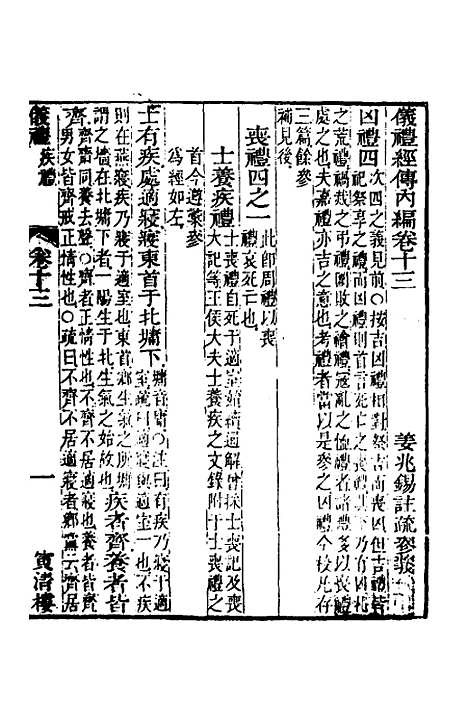 儀禮經傳內編卷十三　姜兆錫註疏參義
凶禮四
次四之義見前○按吉凶禮相對祭吉而喪凶但吉禮皆
祀祭享之禮凶禮則首言死亡之喪而其下乃有凶札
之荒禮禍烖之弔禮圍敗之禬禮寇亂之恤禮者禮多以喪禮
處之也夫嘉禮亦吉之意也考禮者當以是參之凶禮今校凡存
三篇餘參
補見後
喪禮四之一
此師周禮以喪
禮哀死亡也
士養疾禮
士喪禮自死于適室始續通解採士喪記及喪
大記等王侯大夫士養疾之文錄附于士喪禮之
首今遵纂參
為經如左
士有疾處適寢寢東首于北墉下
墉音容○註曰有疾乃寢于適
室疏曰適寢適室一也不疾
則在燕寢疾乃寢于適室也東首鄉生氣之所墉
謂之墻在北墉下者一陽生于北生氣之始故也
疾者齊養者皆
齊
齊齋同養去聲○齊者正情性也不齊不居適寢也養者皆齊
男女皆齊戒正情性也○疏曰不齊不居適寢者鄉黨云齊居
儀禮　疾禮　卷十三　一　寅清樓